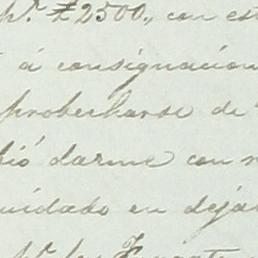 pr. £2500,, con est
á consignacion
proberharse de
bió darme con
uidado en deja
pr. los